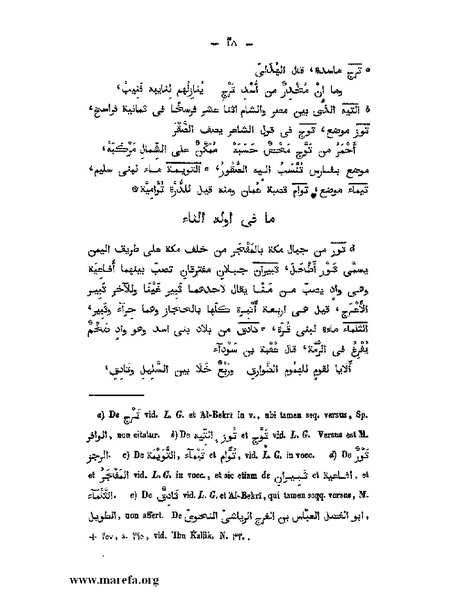 — ٣٨ —
تَرْج ماسدة، قال الهُذَلىّ
وما إنْ مُخْدِرٌ من أُسْدِ تَرْجٍ يُنازِلُهم لنابيه قبيبُ،
التيه الذى بين مصر والشام اثنا عشر فرسخا فى ثمانية فراسخ،
تُوز موضع، تَوَّج فى قول الشاعر يصف الصَّقْرَ
أَحْمَرُ من تَوَّجَ مَحْضٌ حَسَبُهْ مُمَكَّنٌ على الشِّمالِ مَرْكَبُهْ،
موضع بفارس تُنْسَب اليه الصُّقُور، التُوَيْمة ماء لبنى سليم،
تيماء موضع، تُوَام قصبة عُمان ومنه قيل للدُّرّة تُوَامِيّة
ما فى اوله الثاء
ثَوْر من جبال مكة بالمَفْجَر من خلف مكة على طريق اليمن
يسمّى ثَوْر أَطْحَلَ، ثَبِيران جبلان مفترقان تصبّ بينهما أُفاعِيَة
وهى واد يصبّ من مِنًى يقال لاحدهما ثَبِير غَيْنَا وللآخر ثَبِير
الأَعْرَج، قيل هى اربعة أَثْبِرة كلّها بالحجاز وهما حِرَآء وثَبِير،
الثَلْماء ماءة لبنى قُرّة، ثادِق من بلاد بنى اسد وهو وادٍ ضَخْم
يُفْرِغ فى الرُمّة، قال عُقْبة بن سَوْدآء
أَلايا لقومٍ للهموم الطوارق ورَبْعٍ خَلا بين السَّليل وثادِق،
a) De تَرْج vid. L. G. et Al-Bekrî in v., ubi tamen seq. versus, Sp.
الوافر, non citatur. b) De التيه, تُوز et تَوَّج vid. L. G. Versus est M.
الرجز. c) De التُوَيْمة, تيماء et تُوَام vid. L. G. in vocc. d) De ثَوْر
et المَفْجَر vid. L. G. in vocc., et sic etiam de ثبيران et افاعية, et
الثَلْماء. e) De ثادِق vid. L. G. et Al-Bekrî, qui tamen seqq. versus, M.
الطويل, non affert. De ابو الفضل العبّاس بن الفرج الرياشىّ النحوىّ,
✝ ٢٥٧, a. ٣٦٥, vid. Ibn Kallik. N. ٣٢٠.
www.marefa.org